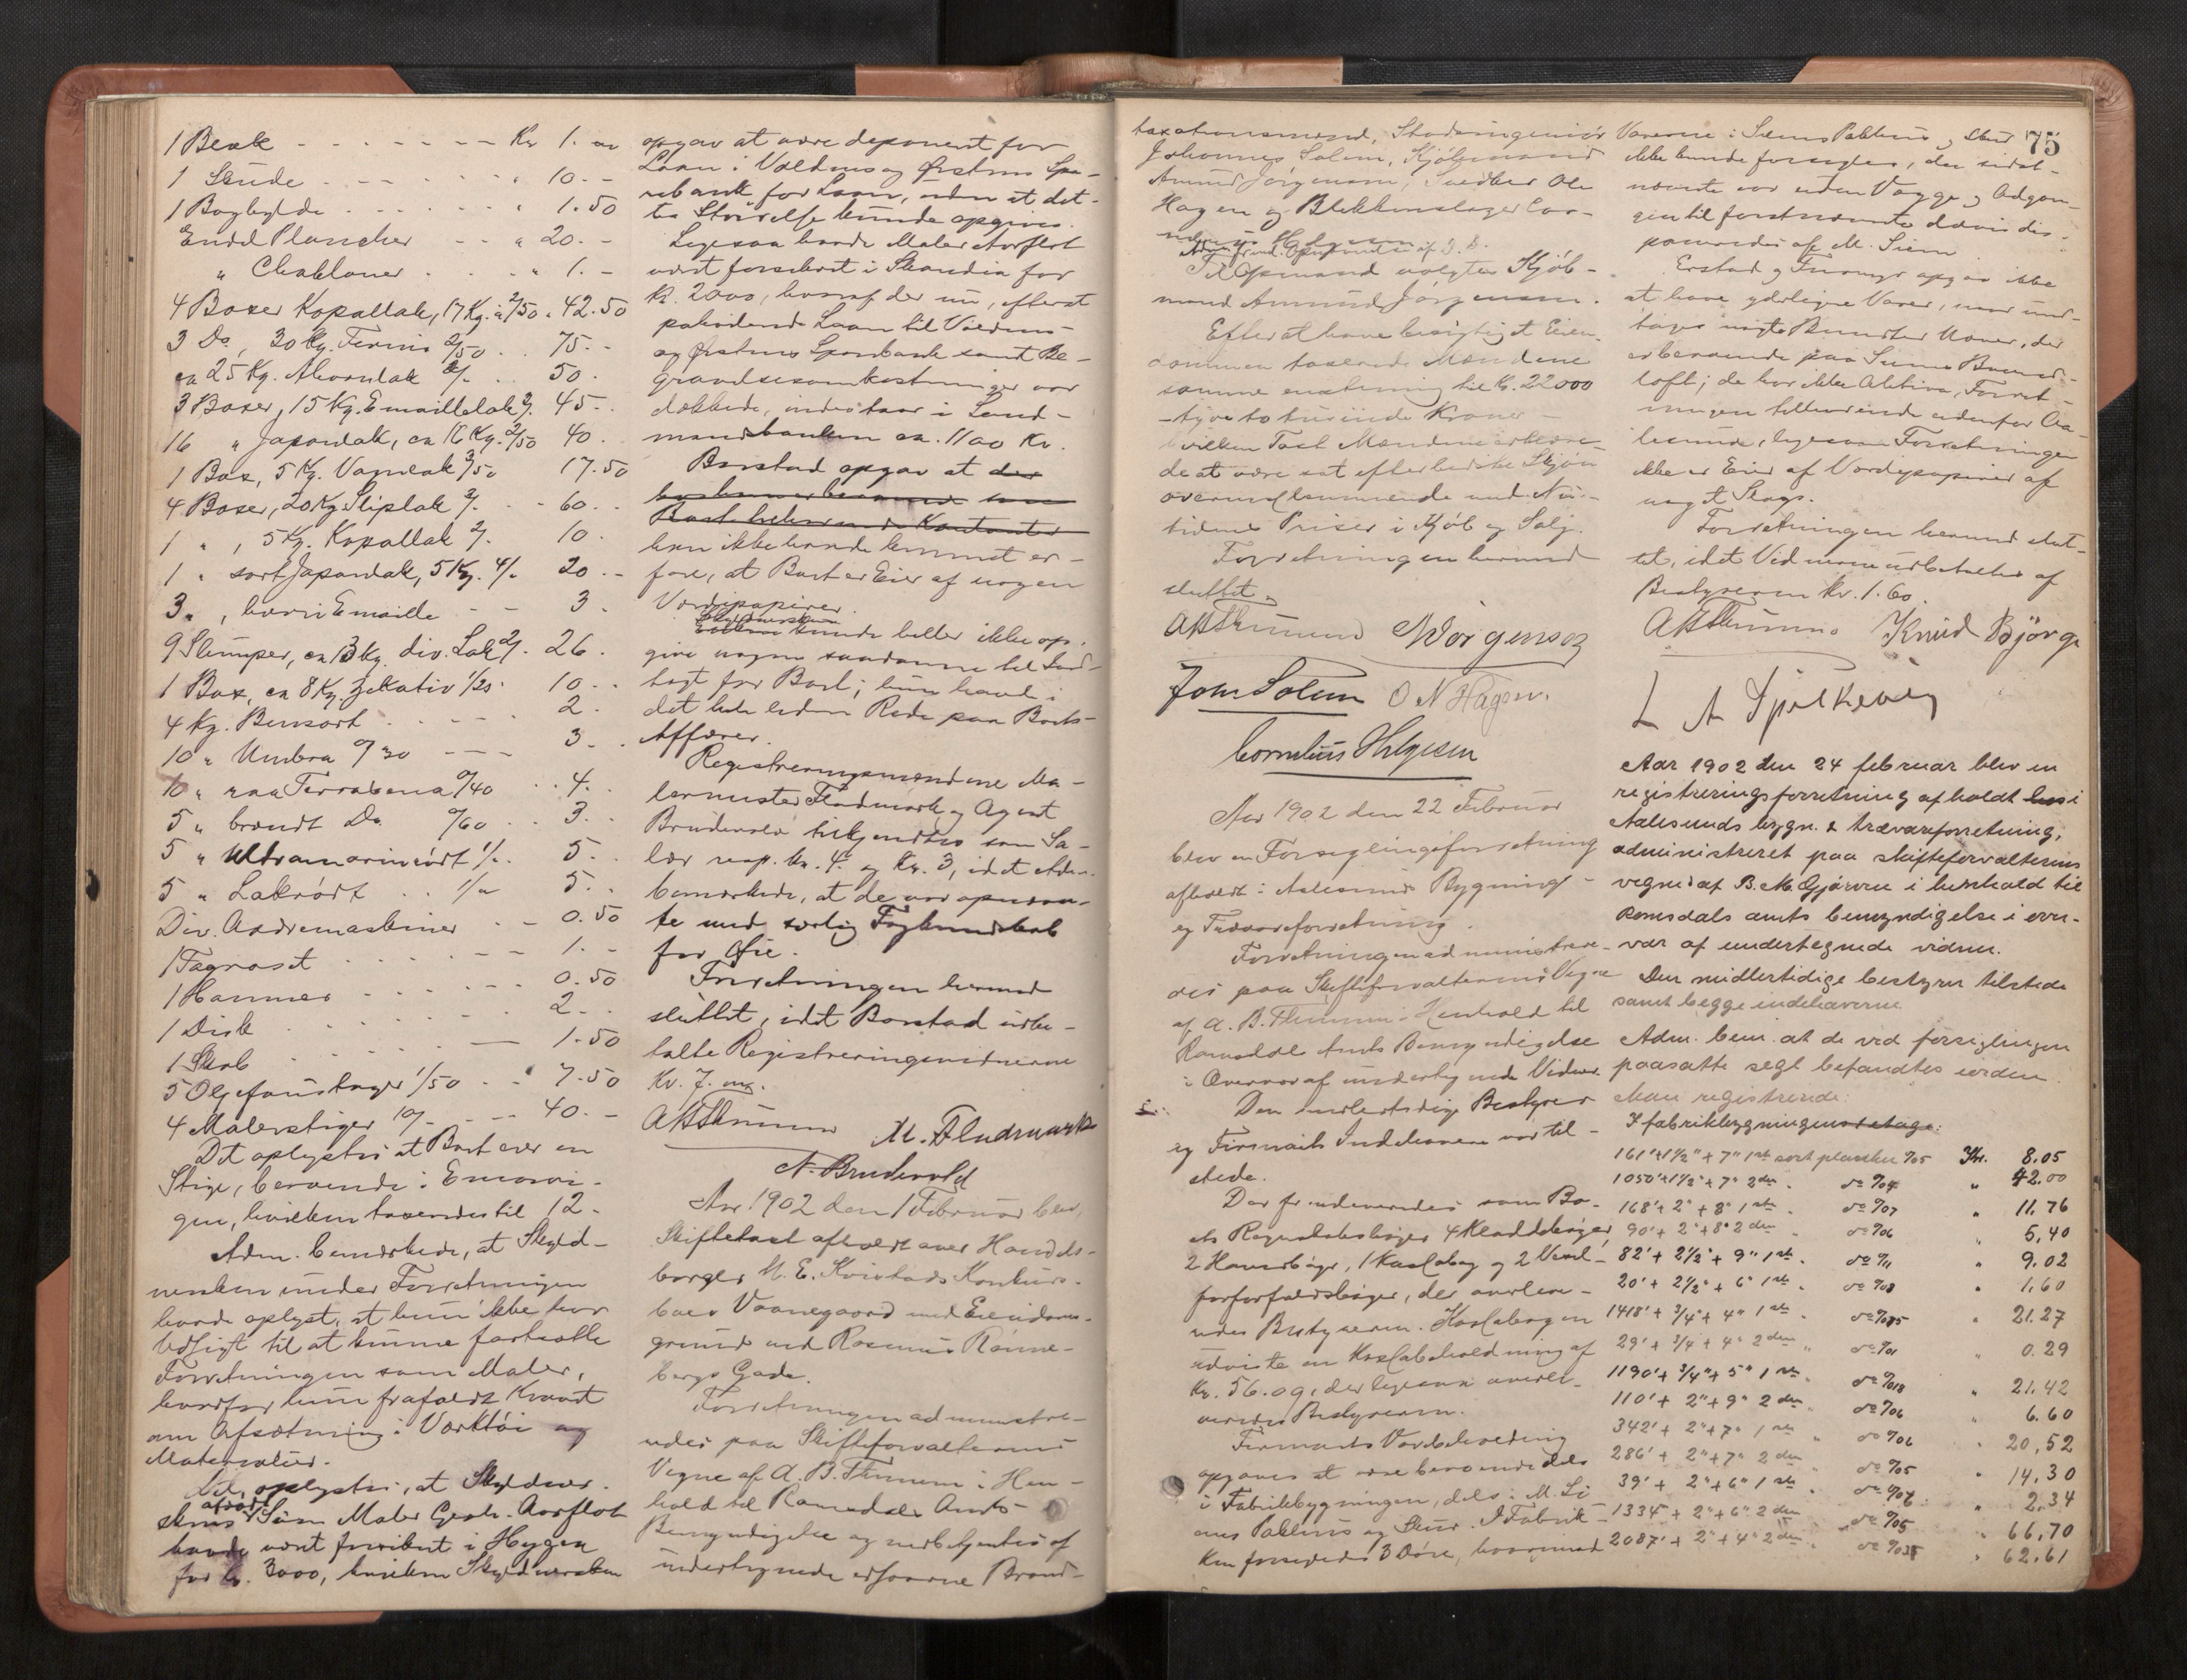 1 Benk - - - - - - - Kr 1. -
1 Skude - - - - - " 10. -
1 Boghylde - - - - - " 1.50
Endel Plancher - - " 20. -
" Chabloner - - - " 1. -
4 Boxer Kopallak, 17 Kg. à 2/50 " 42.50
3 Do, 30 Kg. Fernis 2/50 . . 75. -
ca 25 Kg. Ahornlak 2/- . . 50 .
3 Boxer, 15 Kg. Emaillelak 3/. 45. -
16 " Japanlak, ca 16 Kg. 2/50 40 .
1 Box, 5 Kg. Vognlak 3/50 17.50
4 Boxer, 20 Kg Sliplak 3/. - 60. -
1 " , 5 Kg. Kopallak 2/. 10 .
1 " sort Japanlak, 5 Kg. 4/- 20. -
3 " , Emaille - - 3 .
9 Slumper, ca 13 Kg. div. Lak 2/. 26 .
1 Box, ca 8 Kg. Zekativ 1/25 . 10. -
4 Kg. Bensort . - - - . 2 .
10 " Umbra 0/30 - - - 3 . .
10 " raa Terrabena 0/40 . . 4. .
5 " brændt Do. 0/60 . . 3. .
5 " Ultramarinrødt 1/- . 5. .
5 " Lakrødt . . 1/- 5. .
Div. Aadremaskiner . - 0.50
1 Tagroset . . . - - 1. -
1 Hammer - . . - - 0.50
1 Disk . . . . . 2. -
1 Skab . . . . — 1.50
5 Oljefoustager 1/50 . . " 7.50
4 Malerstiger 10/- - - 40. -
Det oplystes at Boet eier en
Stige, beroende i
gen, hvilken taxeredes til 12. -
Adm. bemærkede, at Skyld-
nersken under Forretningen
havde oplyst, at hun ikke har
til at kunne fortsætte
Forretningen som Maler,
hvorfor hun frafaldt Kravet
om Afsætning i Værktøi og
Materialier.
Det oplystes, at Skyldner-
skens afdøde Søn Maler Aarflot
havde været forsikret i Hygea
for kr. 3000, hvilken Skyldnersken
opgav at være deponeret for
Laan i Voldens og Ørstens Spa-
rebank for Laan, uden at det-
tes Størrelse kunde opgives.
Ligesaa havde Maler Aarflot
været forsikret i Skandia for
kr. 2000, hvoraf der nu, efterat
paahvilende Laan til Voldens-
og Ørstens Sparebank samt Be-
gravelsesomkostninger var
dækkede, indestaar i Sund-
mørsbanken ca. 1100 Kr.
Borstad opgav at der
Kontanter
han ikke havde kunnet er-
fare, at Boet er Eier af nogen
Værdipapirer.
Skyldnersken
kunde heller ikke op-
give nogen saadanne til Ind-
tægt for Boet; hun havde i
det hele liden Rede paa Boets
Affærer.
Registreringsmændene Ma-
lermester Fladmark og Agent
Brudevold tilkjendtes som Sa-
lær resp. kr. 4. og Kr. 3, idet Adm.
bemærkede, at de var opnævn-
te med særlig Fagkundskab
for Øie.
Forretningen hermed
sluttet, idet Borstad udbe-
talte Registreringsvidnerne
Kr. 7. -
AB Thunem M. Fladmark
N. Brudevold
Aar 1902 den 1 Februar blev
Skiftetaxt afholdt over Handels-
borger M. E. Kvistads Konkurs-
boes Vaanegaard med Eiendoms-
grund ved Rasmus Rønne-
bergs Gade.
Forretningen administre-
redes paa Skifteforvalterens
Vegne af A. B. Thunem i Hen-
hold til Romsdals Amts
Bemyndigelse og medbetjentes af
undertegnede edsvorne Brand-
taxationsmænd, Stadsingeniør
Johannes Solem, Kjøbmand
Amund Jørgensen, Snedker Ole
Hagen og Blikkenslager Cor-
nelius Helgesen
Til Opmand valgtes Kjøb-
mand Amund Jørgensen.
Efter at have besigtiget Eien-
dommen taxerede Mændene
samme enstemmig til kr. 22000
- tyve to tusinde Kroner -
hvilken Taxt Mændene erklære-
de at være sat efter bedste Skjøn
overensstemmende med Nu-
tidens Priser i Kjøb og Salg.
Forretningen hermed
sluttet.
AB Thunem AJörgensen
Joh Solem O N Hagen.
Cornelius Helgesen
Aar 1902 den 22 Februar
blev en Forseglingsforretning
afholdt i Aalesunds Bygnings-
og Trævareforretning.
Forretningen administrere-
des paa Skifteforvalterens Vegne
af A. B. Thunem i Henhold til
Romsdals Amts Bemyndigelse
i Overvær af undertegnede Vidner.
Den midlertidige Bestyrer
og Firmaets Indehavere var til-
stede.
Der forefandtes som Bo-
ets Regnskabsbøger 4 Kladdebøger,
2 Hovedbøger, 1 Kassabog og 2 Vexel-
forfaldsbøger, der overleve-
redes Bestyreren. Kassabogen
udviste en Kassabeholdning af
Kr. 56.09, der ligesaa overle-
veredes Bestyreren.
Firmaets Varebeholdning
opgaves at være beroende dels
i Fabrikbygningen, dels i M. Si-
ems Pakhus og Skur. I Fabrik-
ken forsegledes 3 Døre, hvorimod
Varerne i Siems Pakhus og Skur 75
ikke kunde forsegles, da sidst-
nævnte var uden Vægge og Adgan-
gen til førstnævnte
af M. Siem
Erstad og Furmyr opgav ikke
at have yderligere Varer, naar und-
tages nogle Bundter der
er beroende paa Siems
loft; de har ikke Aktiva, Forret-
ningen tilhørende udenfor Aa-
lesund, ligesom Forretningen
ikke er Eier af Værdipapirer af
noget Slags.
Forretningen hermed slut-
tet, idet Vidnerne udbetaltes af
Bestyreren kr. 1.60.
AB Thunem. Knud Bjørge
L A Spjelkavig
Aar 1902 den 24 februar blev en
registreringsforretning afholdt hos i
Aalesunds bygn. & trævareforretning,
administreret paa skifteforvalterens
vegne af B. M. Gjærvu i henhold til
Romsdals amts bemyndigelse i over-
vær af undertegnede vidner.
Den midlertidige bestyrer tilstede
samt begge indehaverne
Adm. bem. at de ved forseglingen
paasatte segl befandtes iorden.
Man registrerede:
I fabrikbygningens etage:
161'+1½"+7" 1ste sort planker %05 Kr. 8.05
1050'+1½"+7" 2den " do %04 " 42.00
168'+2"+8" 1ste " do %07 " 11.76
90'+2"+8" 2den " do %06 " 5,40
82'+2½"+9" 1ste " do %11 " 9.02
20'+2½"+6" 1ste " do %08 " 1.60
1418'+¾"+4" 1ste " do %015 " 21.27
29'+¾"+4" 2den " do %01 " 0.29
1190'+¾"+5" 1ste " do %018 " 21.42
110'+2"+9" 2den " do %06 " 6.60
342'+2"+7" 1ste " do %06 " 20,52
286'+2"+7" 2den " do %05 " 14.30
39'+2"+6" 1ste " do %06 " 2.34
1334'+2"+6" 2den " do %05 " 66.70
2087'+2"+4" 2den " do %03 " 62.61